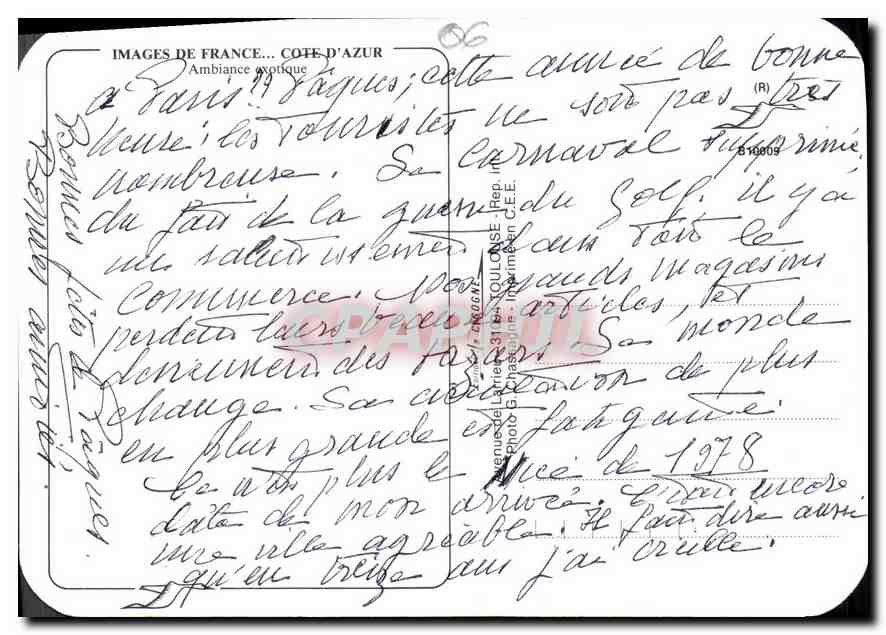 06
IMAGES DE FRANCE... COTE D'AZUR
Ambiance exotique
à Paris !! Pâques, cette année de bonne
heure, les Touristes ne sont pas très
nombreuse. Le Carnaval supprimé,
du fait de la guerre du Golf. il y a
un dans tout le
commerce. Nos grands magasins
perdent leurs beaux articles, et
deviennent des bazars. Le monde
change. Sa de plus
en plus grande est fatigante
Ce n'est plus le Nice de 1978
date de mon arrivée. C'était encore
une ville agréable. Il faut dire aussi
qu'en treize ans j'ai
Bonnes fêtes de Pâques.
Bonnes amitiés.
(R)
B10009
Editions "la CIGOGNE"
Avenue de Larrieu - 31094 TOULOUSE - Rep. int.
Photo G. Chastagne - Imprimé en C.E.E.
CPAPHIL